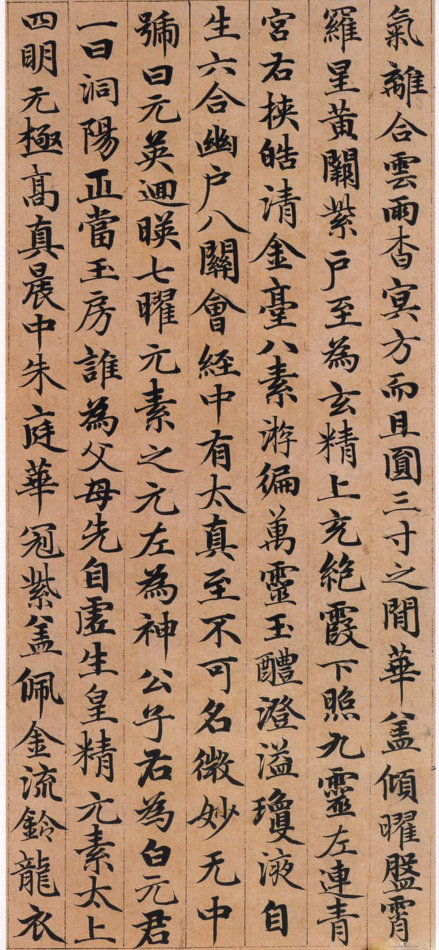 氣離合雲雨杳冥方而且圓三寸之間華盖傾曜盤霄
羅星黃闕紫戶至為玄精上充絕霞下照九靈左連青
宮右挾皓清金臺八素游編萬靈玉醴澄溢瓊液自
生六合幽户八關會經中有太真至不可名微妙无中
號曰元英迴暎七曜元素之元左為神公子右為白元君
一曰洞陽正當玉房誰為父母先自虛生皇精元素太上
四明无極高真晨中朱庭華冠紫盖佩金流鈴龍衣